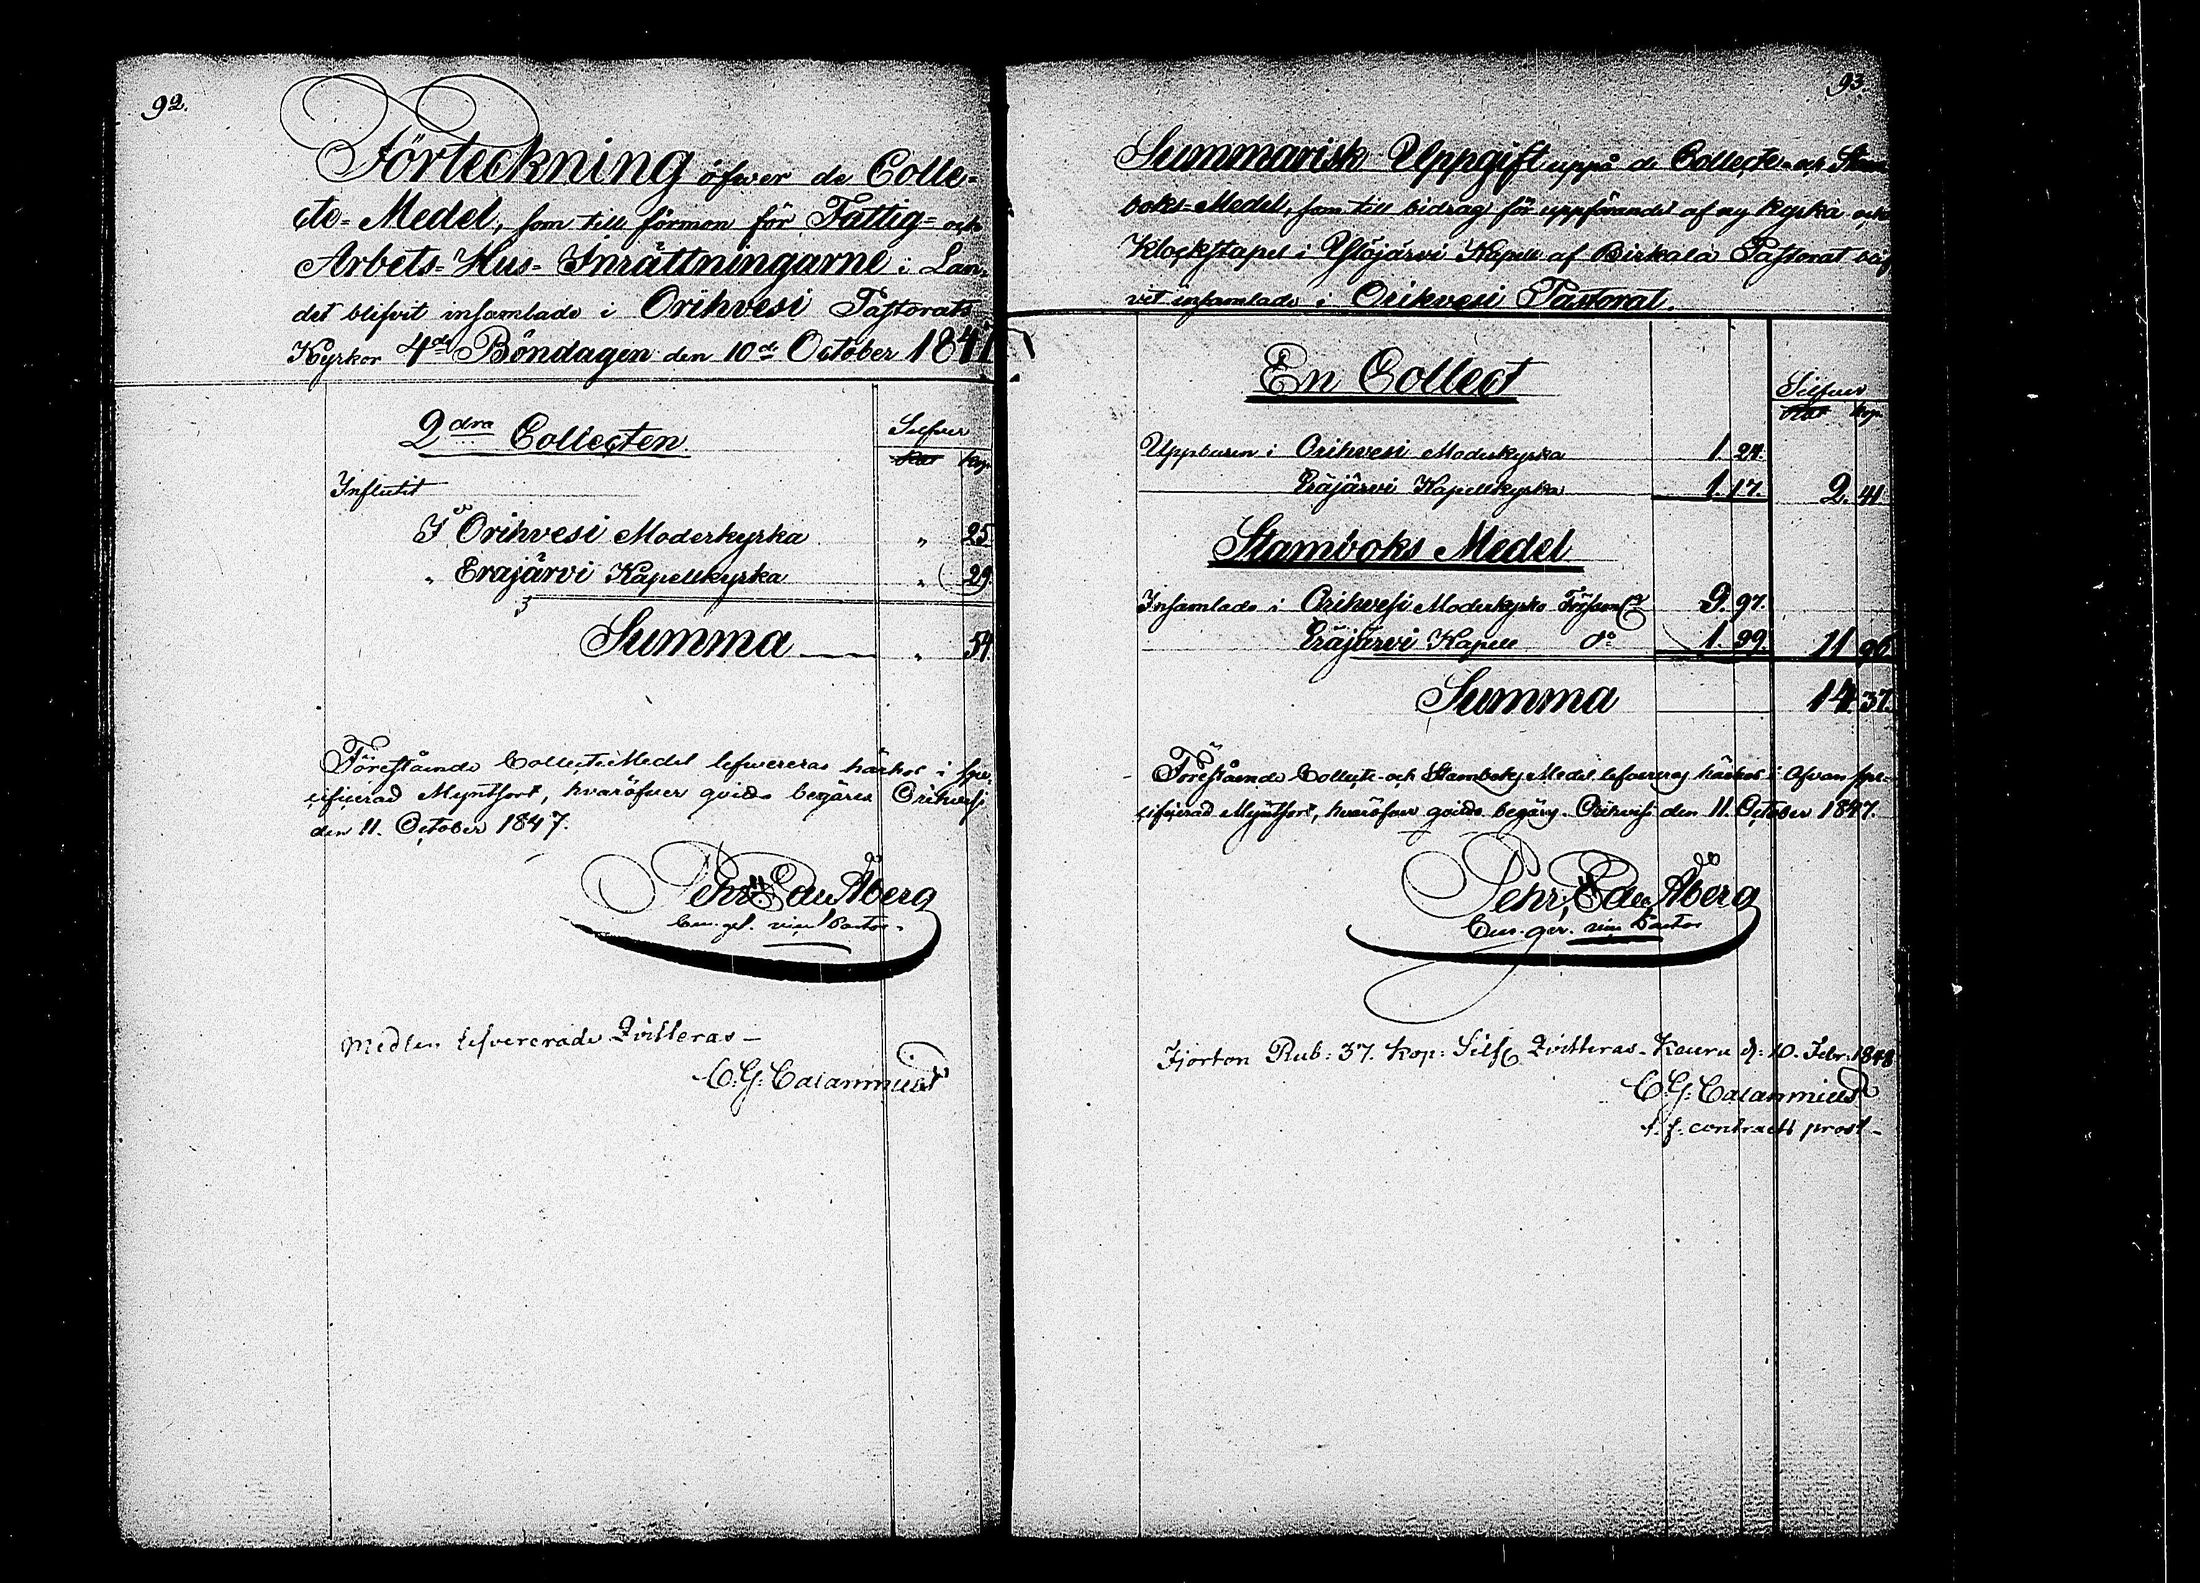 92.
Förteckning öfwer de Colle=
cte=Medel, som till förmon för Fattig= och
Arbets=Hus=Inrättningarne i Lan=
det blifvit insamlade i Orihvesi Pastorats
Kyrkor 4de Böndagen den 10de October 1847
2dra Collecten
Silfver
Rub Kop.
Influtit
I Orihvesi Moderkyrka " 25
" Eräjärvi Kapellkyrka " 29
Summa " 54
Förestående CollecteMedel lefwereras härhos i spe=
cificerad Myntsort, hvaröfwer qvitto begäres Orihvesi
den 11. October 1847.
Pehr Edu Åberg
vice Pastor
Medlen lefvererade Qvitteras
C. G. Calamnius
93.
Summarisk Uppgift uppå de Collecte= och Stam
boks=Medel, som till bidrag för uppförandet af ny Kyrka och
Klockstapel i Ylöjärvi Kapell af Birkala Pastorat blif
vit insamlade i Orihvesi Pastorat.
En Collect
Silfver
Rub Kop.
Uppburen i Orihvesi Moderkyrka 1 24.
Eräjärvi Kapellkyrka 1. 17. 2. 41
Stamboks Medel
Insamlade i Orihvesi Moderkyrko Församl. 9. 97.
Eräjärvi Kapell do 1. 99. 11 96
Summa 14. 37.
Förestående Collecte- och Stamboks Medel lefvereras härhos i ofvan spe-
cificerad Myntsort, hvaröfver qvitto begäres. Orihvesi den 11. October 1847.
Pehr Edu Åberg
vice Pastor
Fjorton Rub: 37. kop: Silf Qvitteras. Keuru d: 10. Febr. 1848
C. G. Calamnius
t. f. contracts prost